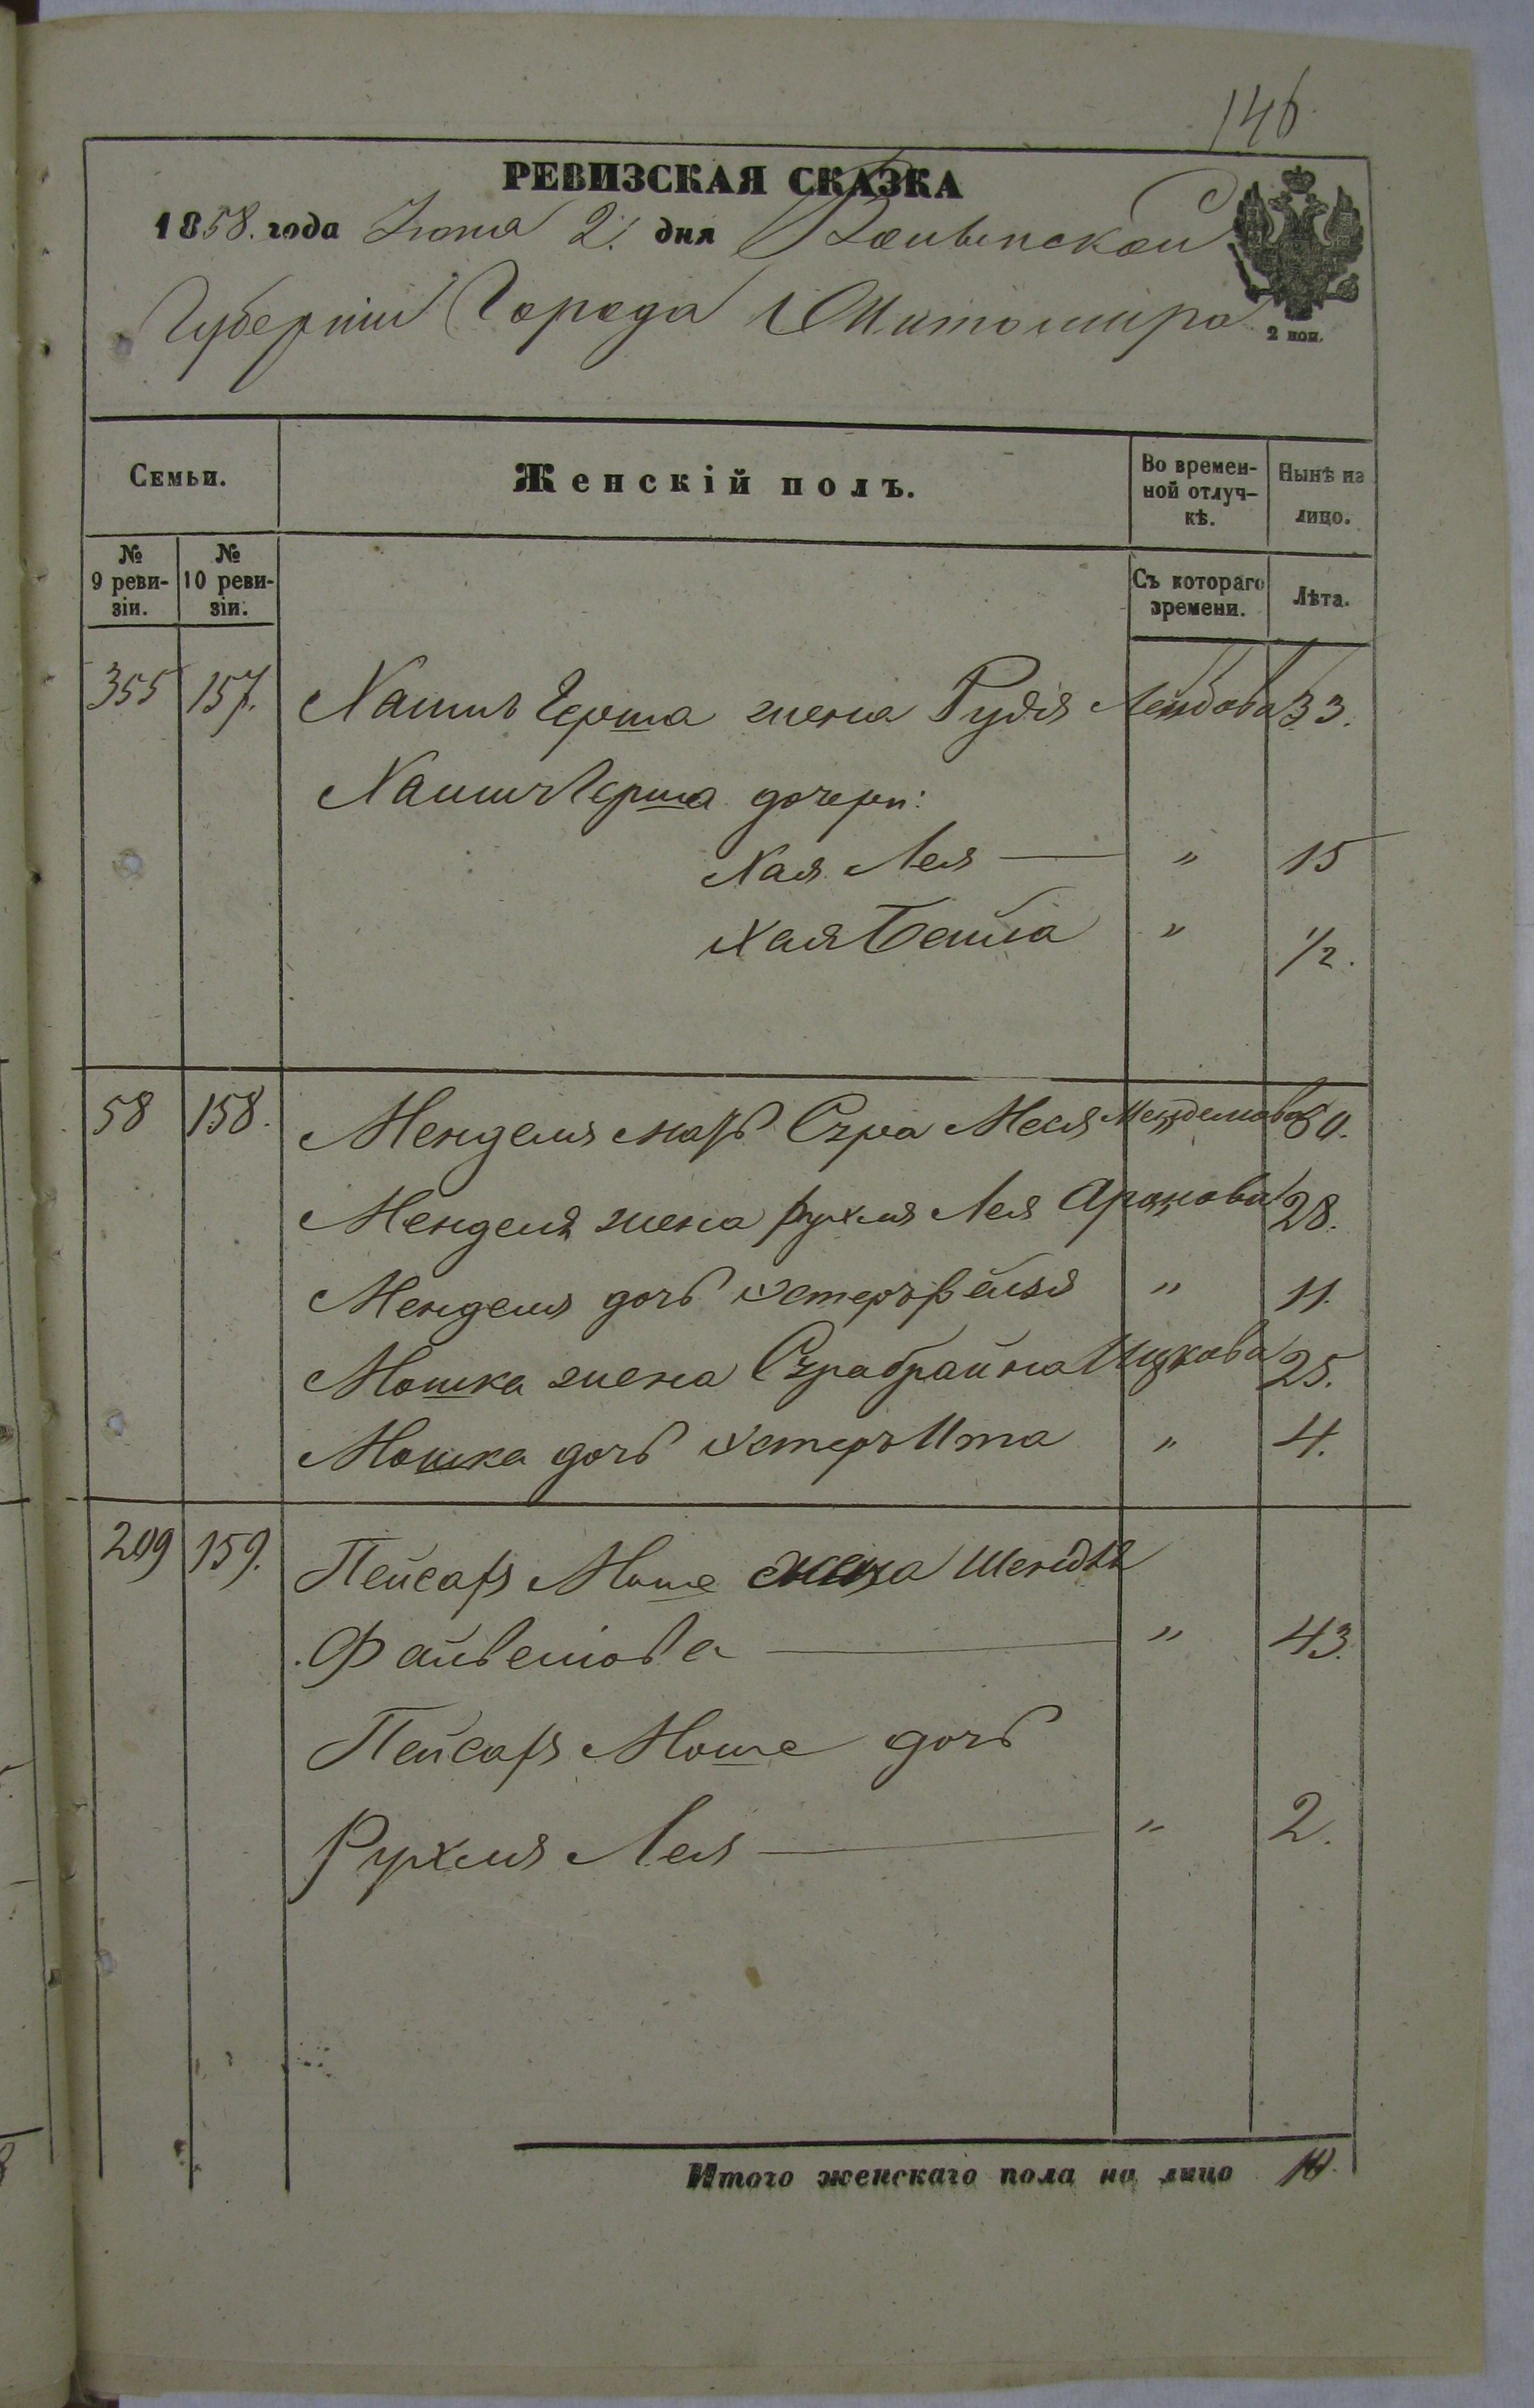 146
РЕВИЗСКАЯ СКАЗКА
1858. года Іюня 2. дня Волынской
Губерніи Города Житомира
2 коп.
Семьи.
Женскій полъ.
Во времен-
ной отлуч-
кѣ.
Нынѣ на
лицо.
№
9 реви-
зіи.
№
10 реви-
зіи.
Съ котораго
времени.
Лѣта.
355 157. Хаимъ Герша жена Рудя Лейбова 33.
Хаимъ Герша дочери:
Хая Лея — " 15
Хая Бейла " 1/2.
58 158. Менделя мать Сура Меся Менделиова 60.
Менделя жена Рухля Лея Аронова 28.
Менделя дочь Эстеръ Рейзя " 11.
Мошка жена Сура Брайна Ицкова 25.
Мошка дочь Эстеръ Ита " 4.
209 159. Пейсахъ Моше жена Шендля
Файвелова — " 43.
Пейсахъ Моше дочь
Рухля Лея — " 2.
Итого женскаго пола на лицо 10.